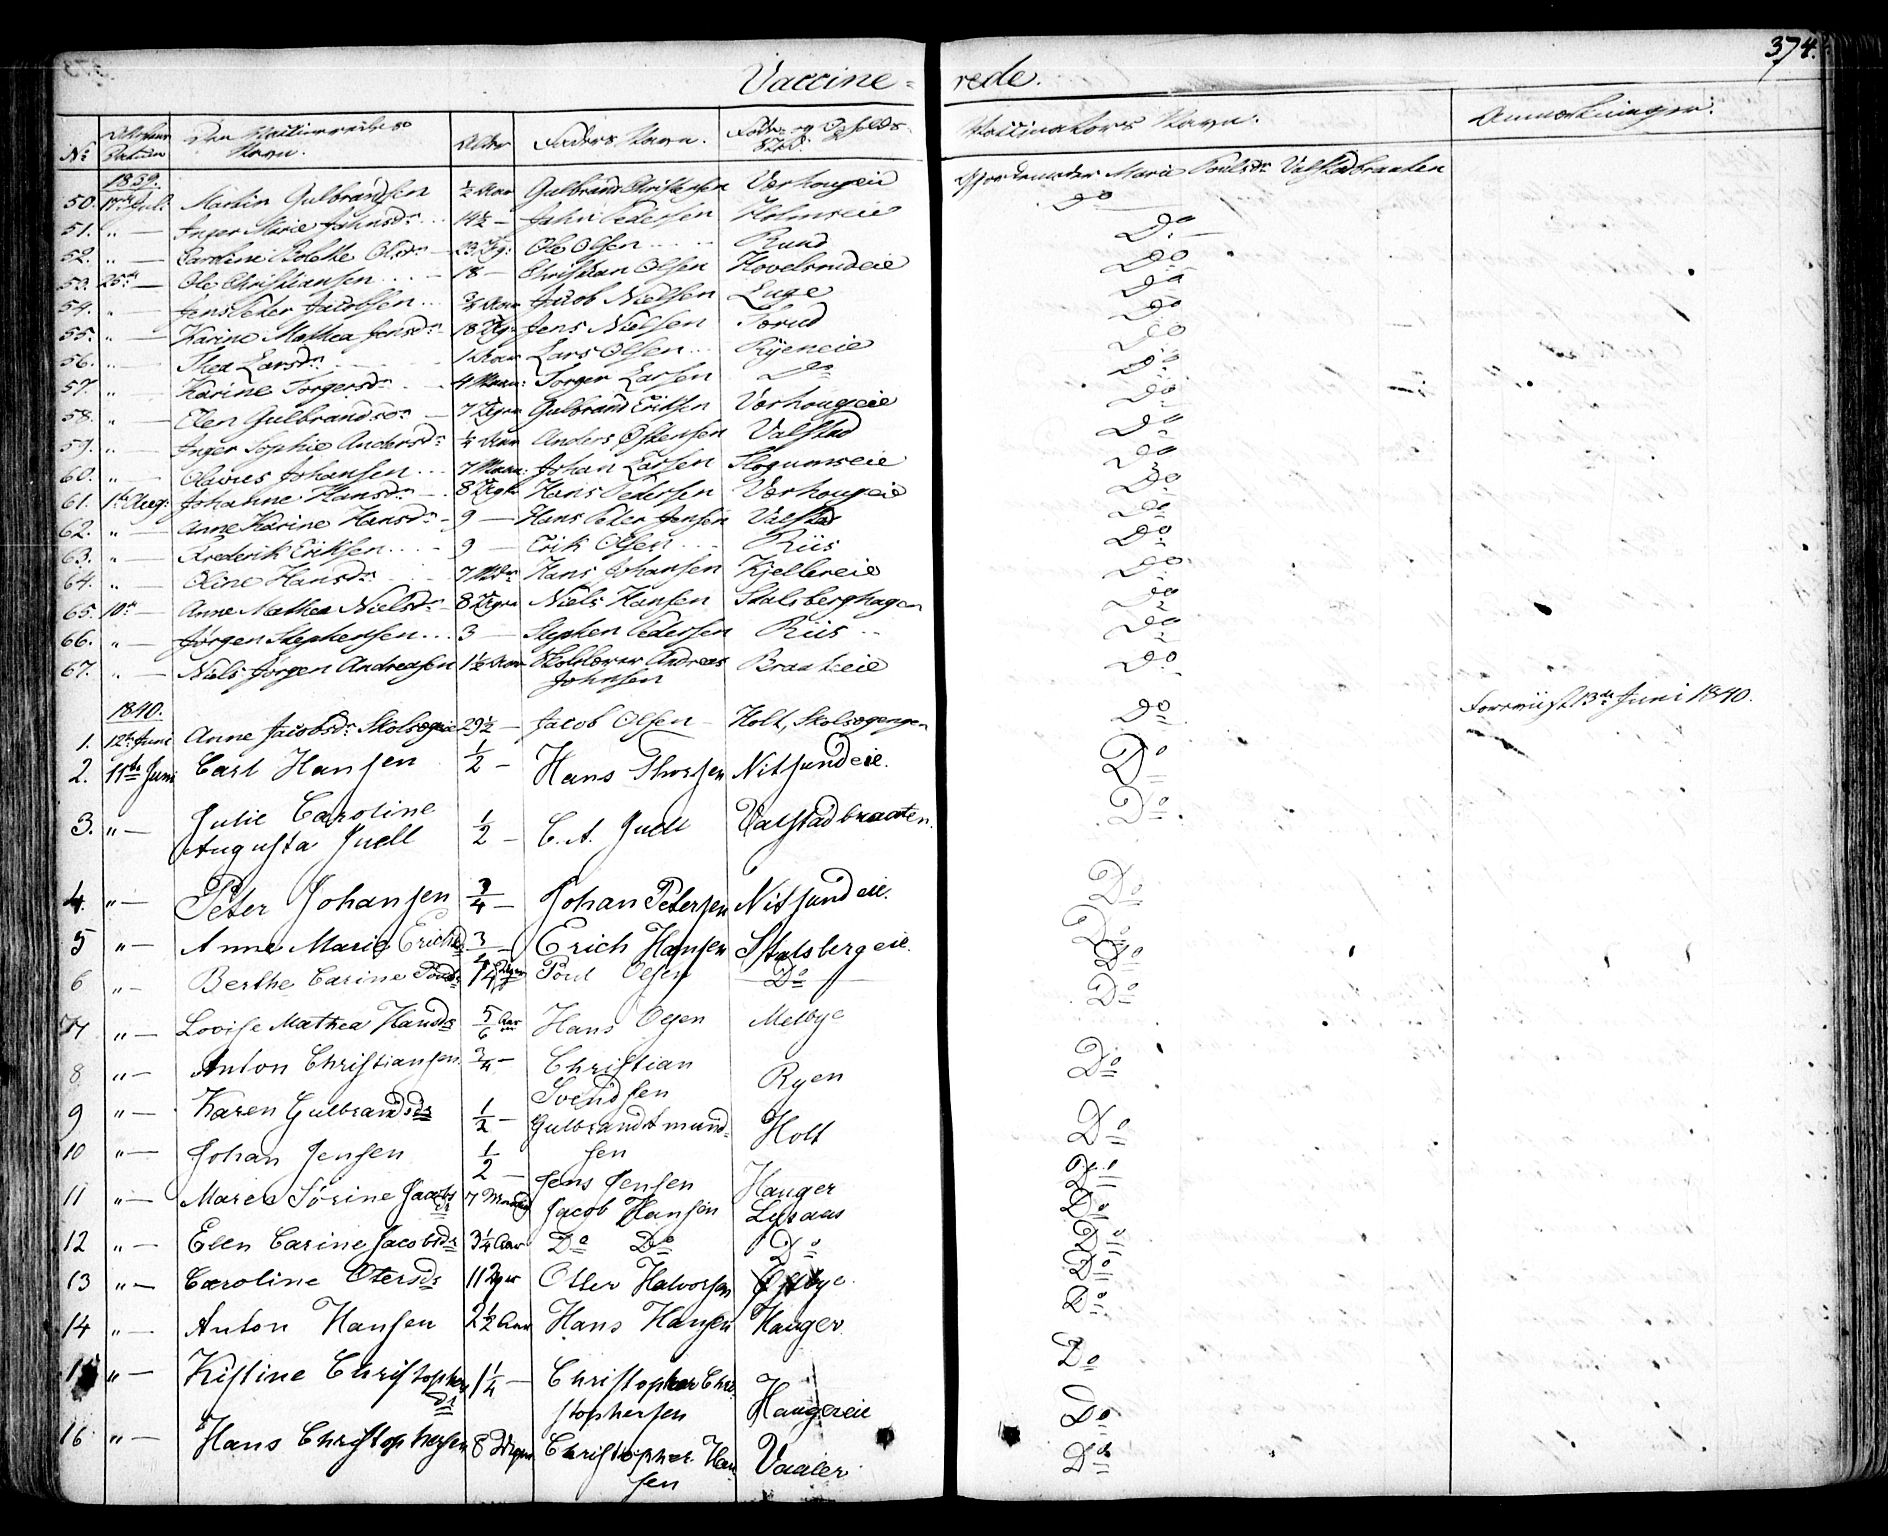 374.
Vaccine=rede.
No Den Vaccineredes Navn. Alder Faders Navn. Føde- og Opholds-Sted. Vaccinators Navn. Anmærkninger.
1839.
50. 17de Juli. Martin Gulbrandsen ½ Aar Gulbrand Christensen Vorhougeie Gjordemoder Marie Poulsdr Valstadbraaten
51. " — Inger Marie Jahnsdr 14½ — Jahn Pedersen Holmseie Do
52. " — Caroline Bolethe Olsdr 23 Ole Olsen Rund Do
53. 25de — Ole Christiansen 18 — Christian Olsen Hovelsrudeie Do
54. " — Jens Peder Jacobsen ¾ Aar Jacob Nielsen Enge Do
55. " — Karine Mathea Jensdr 18 Jens Nielsen Sørud Do
56. " — Thea Larsdr 1 Aar Lars Olsen Ryeneie Do
57. " — Karine Torgersdr 4 Torger Larsen Do Do
58. " — Elen Gulbrandsdr 7 Gulbrand Eriksen Vorhougeie Do
59. " — Inger Sophie Andersdr ¼ Aar Anders Østensen Valstad Do
60. " — Olavus Johansen 7 Johan Larsen Slogumseie Do
61. 1ste Aug: Johanne Hansdr 8 Hans Pedersen Vorhougeie Do
62. " — Anne Karine Hansdr 9 — Hans Peder Jensen Valstad Do
63. " — Frederik Eriksen 9 — Erik Olsen Riis Do
64. " — Oline Hansdr 7 Hans Johansen Kjellereie Do
65. 10de — Anne Mathea Nielsdr 8 Niels Hansen Stalsberghagen Do
66. " — Jørgen Stephensen 3 — Stephen Pedersen Riis Do
67. " — Niels Jørgen Andreasen 1½ Aar Skolelærer Andreas Johnsen Braateeie Do
1840.
1. 12te Juni Anne Jacobsdr Skolsegeie 29½ — Jacob Olsen Holt, Do 13de Juni 1840.
2. 11te Juni Carl Hansen ½ — Hans Thorsen Nitsundeie. Do
3. " — Julie Caroline Augusta Juell ½ — C. A. Juell Valstadbraaten. Do
4. " — Peter Johansen ¾ — Johan Petersen Nitsundeie. Do
5 " — Anne Marie Erichsd ¾ — Erich Hansen Stalsbergeie. Do
6 " — Berthe Carine Poulsd 14 Poul Olsen Do Do
7 " — Lovise Mathea Hansds 5/6 Aar Hans Olsen Melbye Do
8 " — Anton Christiansen ¾ — Christian Svendsen Ryen Do
9 " — Karen Gulbrandsds ½ — Gulbrand Amundsen Holt Do
10 " — Johan Jensen ½ — Jens Jensen Hauger Do
11 " — Maren Sørine Jacobsds 7 Jacob Hansen Lysaas Do
12 " — Elen Carine Jacobsds 3¼ Aar Do Do Do Do
13 " — Caroline Otersds 11 Otter Halvorsen Østbye Do
14 " — Anton Hansen 2½ Aar Hans Hansen Hauger. Do
15 " — Kistine Christophersds 1¼ — Christopher Christophersen Haugereie Do
16 " — Hans Christophersen 8 Christopher Hansen Vaaler Do